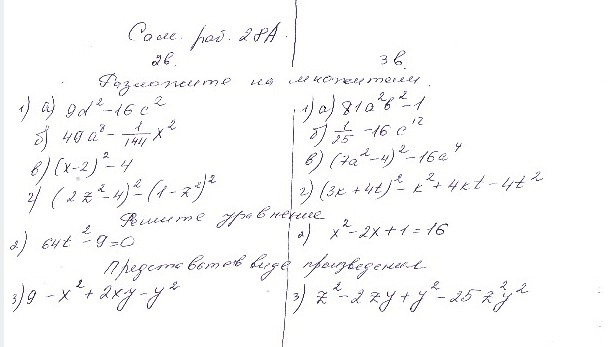 Сам. раб. 28А.
2в. 3в.
Разложите на множители.
1) а) 9d² - 16c²
б) 49a⁸ - 1/144 x²
в) (x-2)² - 4
г) (2z² - 4)² - (1 - z²)²
1) а) 81a²b² - 1
б) 1/25 - 16c¹²
в) (7a² - 4)² - 16a⁴
г) (3k + 4t)² - k² + 4kt - 4t²
Решите уравнение
2) 64t² - 9 = 0
2) x² - 2x + 1 = 16
Представьте в виде произведения
3) 9 - x² + 2xy - y²
3) z² - 2zy + y² - 25z²y²